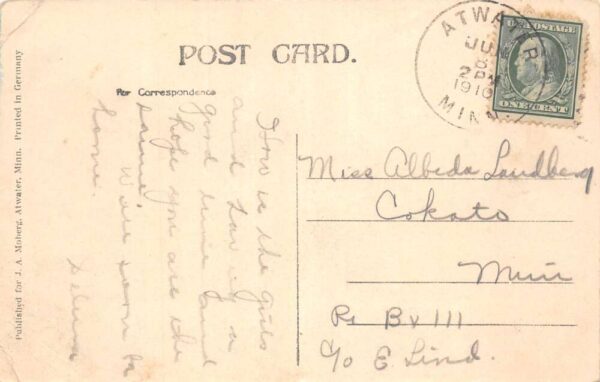 POST CARD.
For Correspondence
How is the girls
and hav ing a
good time and
hope you are the
same.
Will soon be
home.
ATWATER
JU
8
2 PM
1910
MINN.
U.S. POSTAGE
ONE CENT
Miss Albeda Lundberg
Cokato
Minn
Bx 111
c/o E Lind.
Published for J. A. Moberg, Atwater, Minn. Printed in Germany